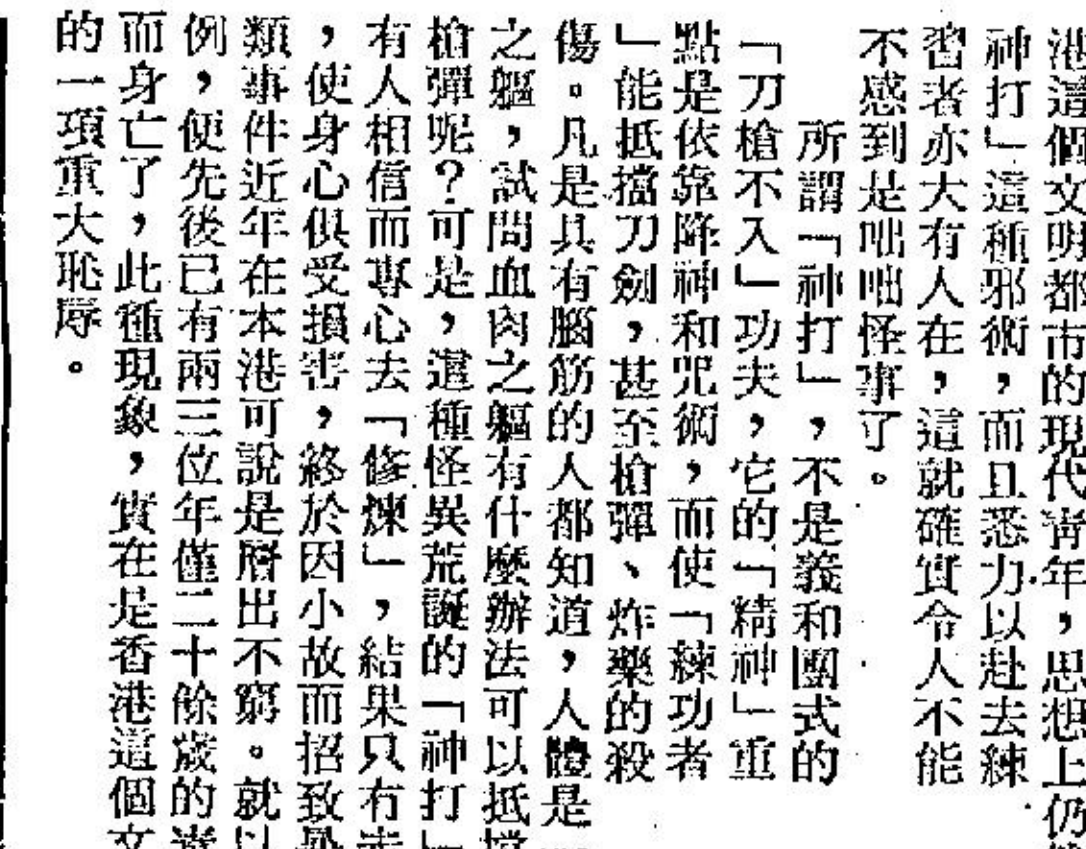 港這個文明都市的現代青年，思想上仍
神打」這種邪術，而且悉力以赴去練
習者亦大有人在，這就確實令人不能
不感到是咄咄怪事了。
所謂「神打」，不是義和團式的
「刀槍不入」功夫，它的「精神」重
點是依靠降神和咒術，而使「練功者
」能抵擋刀劍，甚至槍彈、炸藥的殺
傷。凡是具有腦筋的人都知道，人體是
之軀，試問血肉之軀有什麼辦法可以抵擋
槍彈呢？可是，這種怪異荒誕的「神打」
有人相信而專心去「修煉」，結果只有走
，使身心俱受損害，終於因小故而招致
類事件近年在本港可說是層出不窮。就以
例，便先後已有兩三位年僅二十餘歲的青
而身亡了，此種現象，實在是香港這個文
的一項重大恥辱。